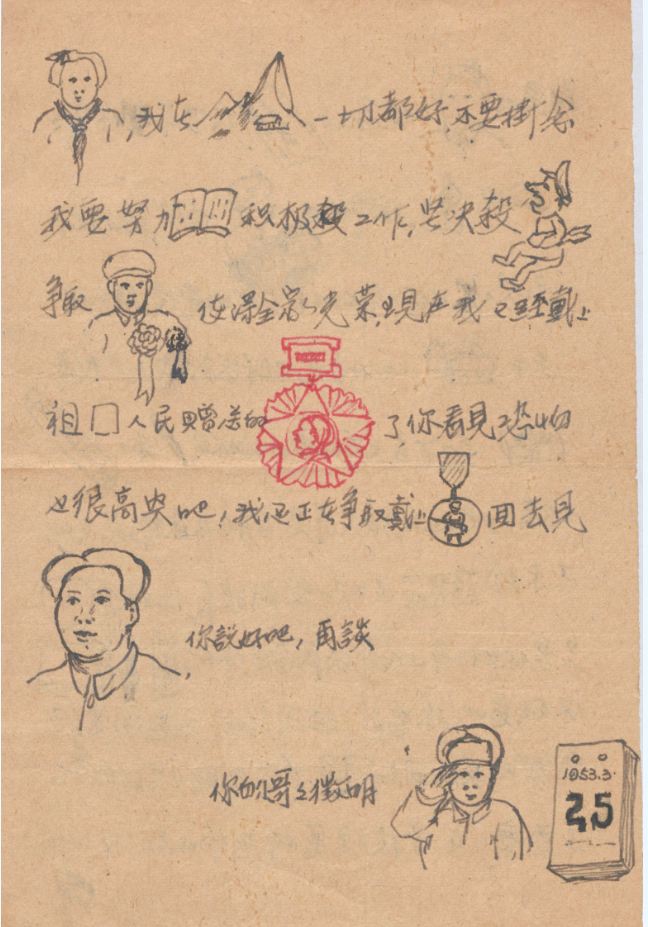 我在一切都好,不要掛念
我要努力积极工作,坚决殺
争取全家光荣,現在我已經戴上
祖囗人民贈送的了你看見恐怕
也很高兴吧!我还正在争取戴上回去見
你説好吧,再談
你的哥哥徵明
1953.3.
25